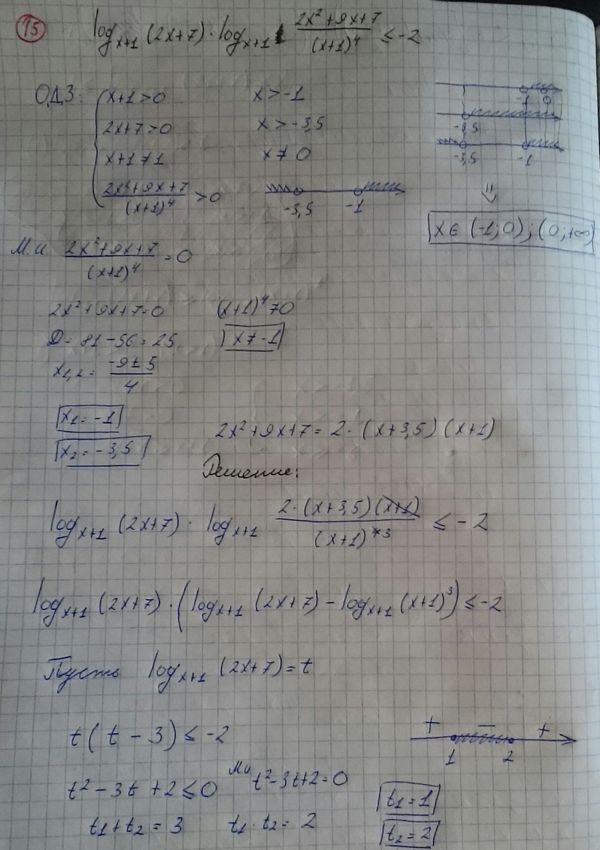 15 log_{x+1} (2x+7) · log_{x+1} \frac{2x²+9x+7}{(x+1)⁴} ≤ -2
ОДЗ:
x+1>0 x>-1
2x+7>0 x>-3,5
x+1≠1 x≠0
\frac{2x²+9x+7}{(x+1)⁴} > 0 -3,5 -1
-1 0
-3,5
-3,5 -1
⇓
x∈ (-1;0);(0;+∞)
М.и. \frac{2x²+9x+7}{(x+1)⁴} = 0
2x²+9x+7=0 (x+1)⁴≠0
D=81-56=25 x≠-1
x_{1,2} = \frac{-9±5}{4}
x₁=-1
x₂=-3,5 2x²+9x+7=2·(x+3,5)(x+1)
Решение:
log_{x+1} (2x+7) · log_{x+1} \frac{2·(x+3,5)(x+1)}{(x+1)^{4 3}} ≤ -2
log_{x+1} (2x+7) · (log_{x+1} (2x+7) - log_{x+1} (x+1)³) ≤ -2
Пусть log_{x+1} (2x+7) = t
t(t-3) ≤ -2 + - +
1 2
t²-3t+2≤0 Ми t²-3t+2=0 t₁=1
t₁+t₂=3 t₁·t₂=2 t₂=2